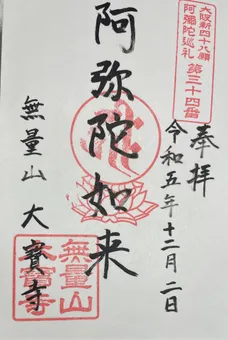 大阪新四十八願
阿彌陀巡礼 第三十四番
奉拝
令和五年十二月二日
阿弥陀如来
無量山 大寶寺
無量山
大寶寺